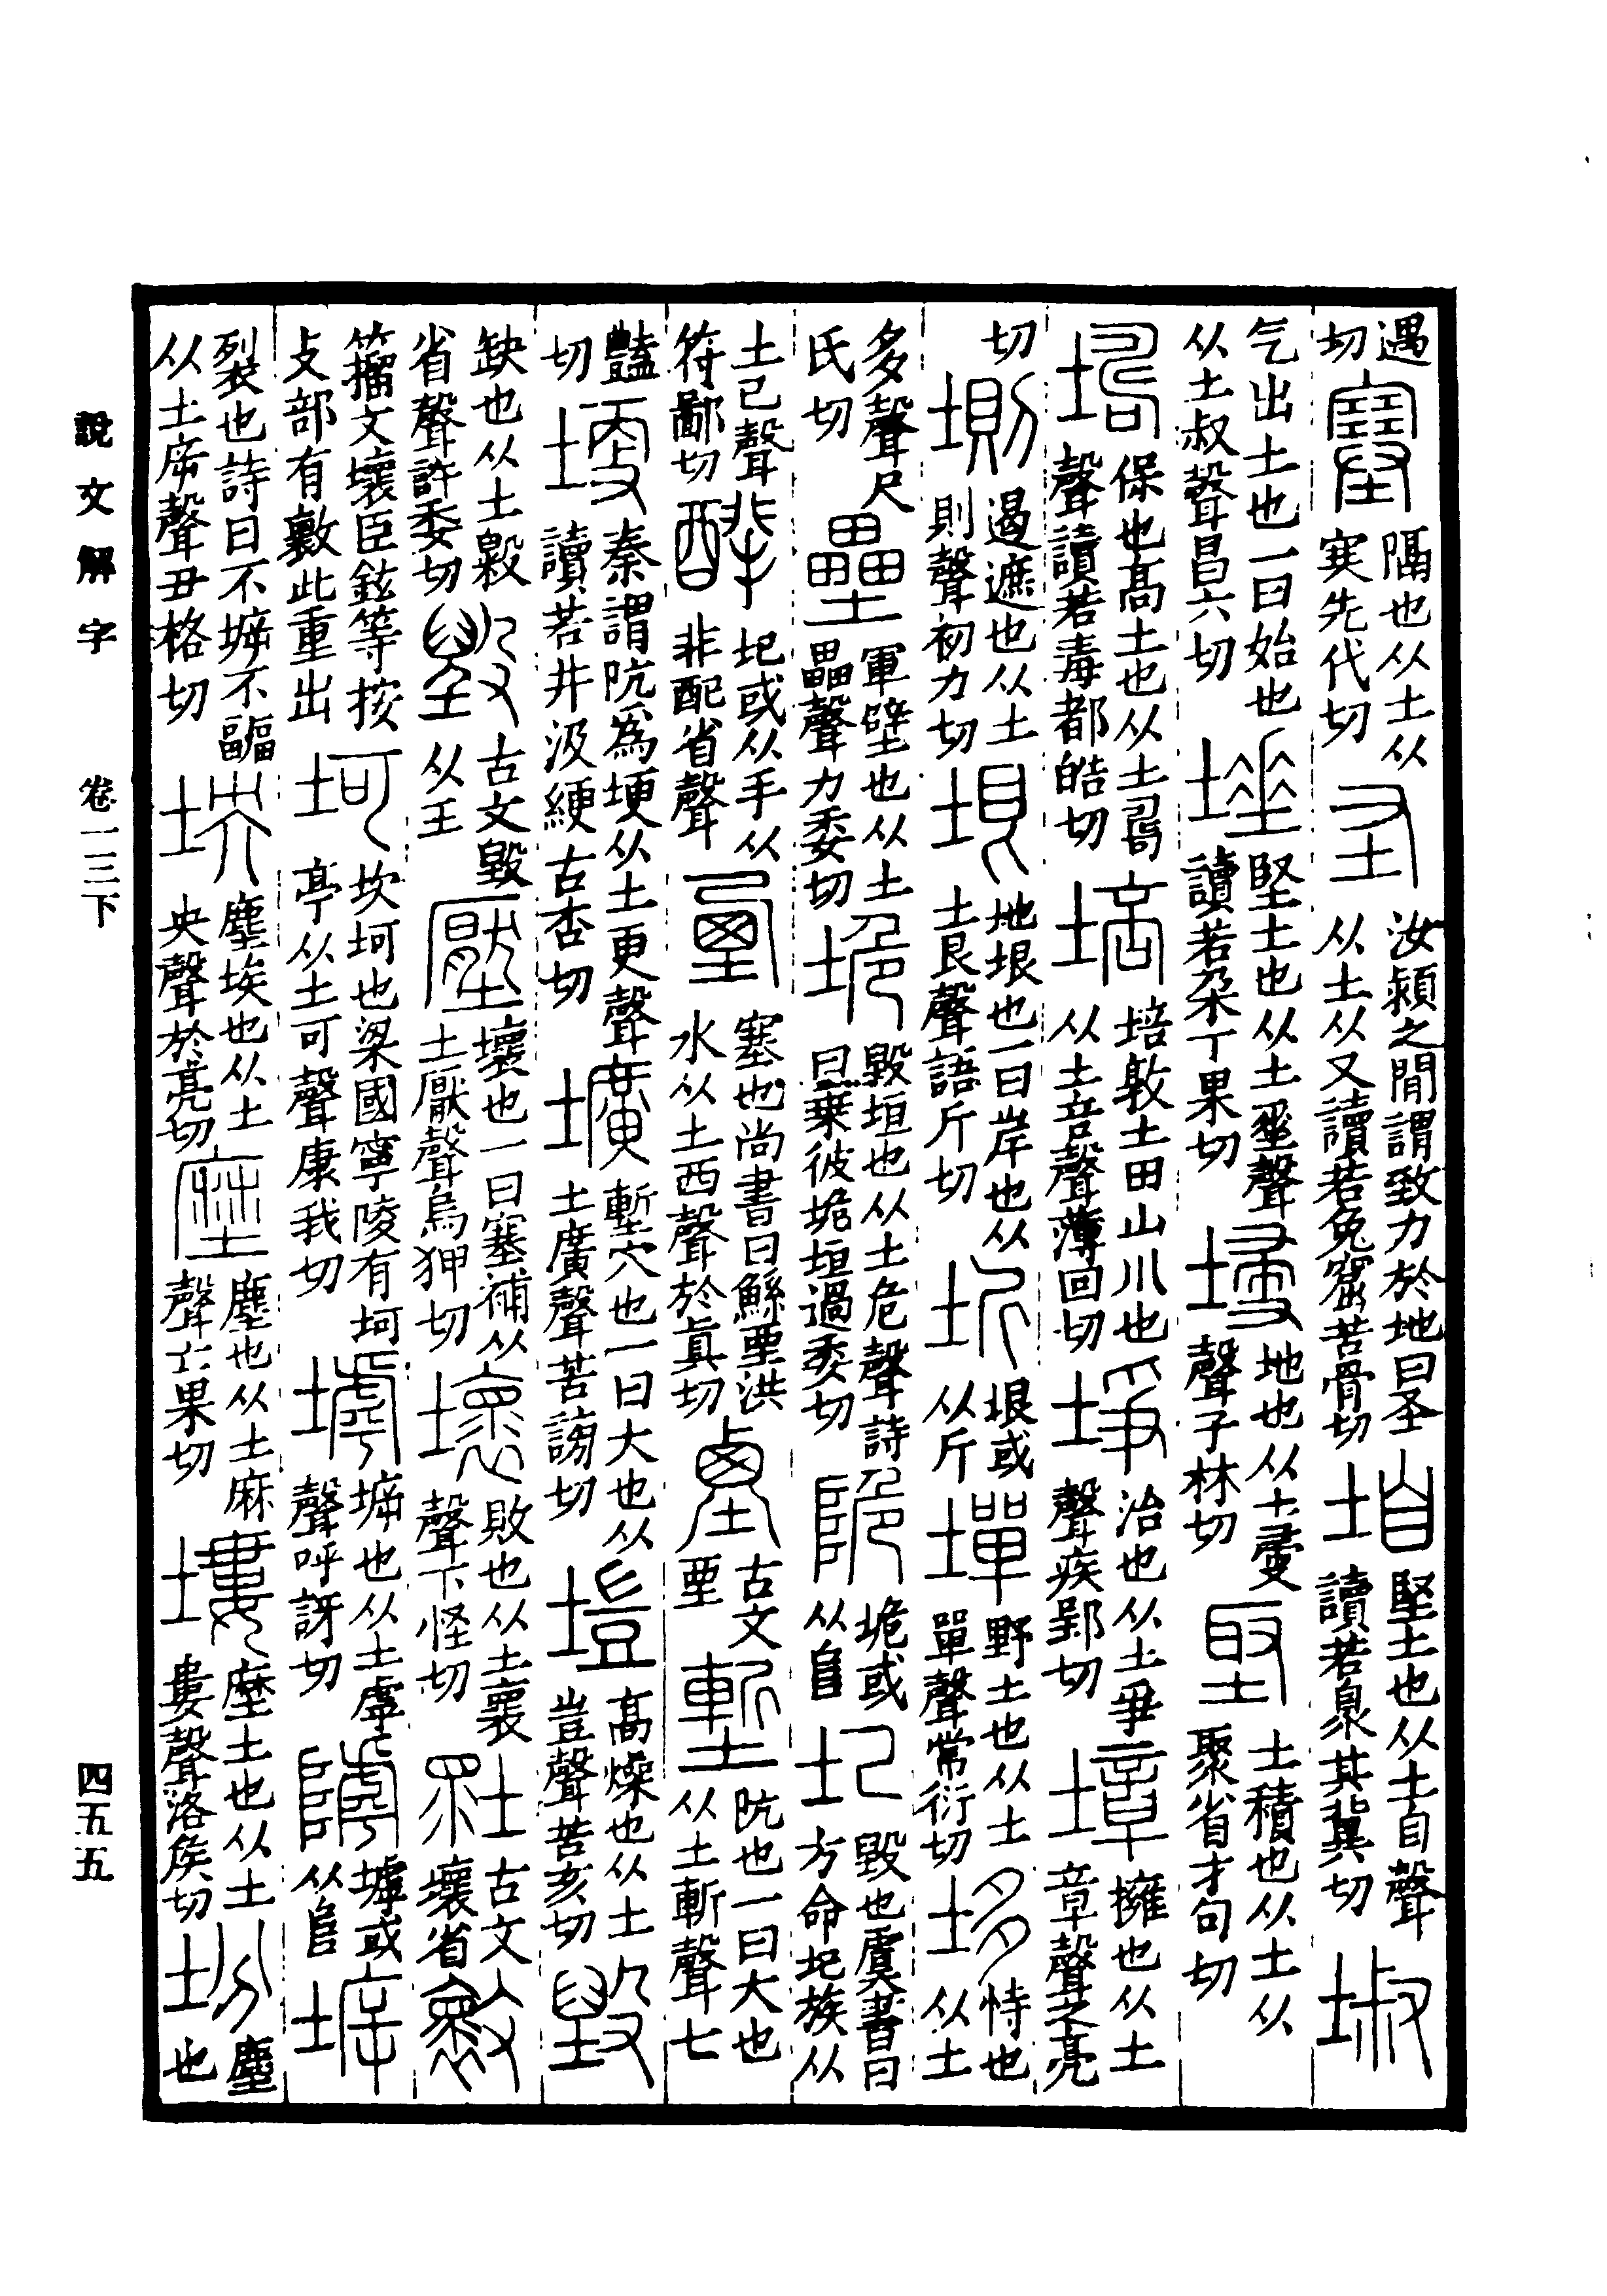 遇切塞隔也从土从𡨄先代切圣汝潁之閒謂致力於地曰圣从土从又讀若兔窟苦骨切垍堅土也从土自聲讀若臮其冀切埱
气出土也一曰始也从土叔聲昌六切埵堅土也从土𠂹聲讀若朶丁果切埐地也从土𠬶聲子林切埾土積也从土从聚省才句切
壔保也高土也从土𠷎聲讀若毒都皓切培培敦土田山川也从土咅聲薄回切埩治也从土爭聲疾郢切墇擁也从土章聲之亮
切𡍫遏遮也从土則聲初力切垠地垠也一曰岸也从土艮聲語斤切圻垠或从斤墠野土也从土單聲常衍切垑恃也从土
多聲尺氏切壘軍壁也从土畾聲力委切垝毀垣也从土危聲詩曰乘彼垝垣過委切陒垝或从𨸏圮毀也虞書曰方命圮族从
土己聲符鄙切圮或从手从非配省聲垔塞也尚書曰鯀垔洪水从土西聲於眞切古文垔塹阬也一曰大也从土斬聲七
豔切埂秦謂阬爲埂从土更聲讀若井汲綆古杏切壙塹穴也一曰大也从土廣聲苦謗切塏高燥也从土豈聲苦亥切毀
缺也从土毇省聲許委切古文毀从王壓壞也一曰塞補从土厭聲烏狎切壞敗也从土褱聲下怪切古文壞省
籀文壞臣鉉等按攴部有𣀩此重出坷坎坷也梁國寧陵有坷亭从土可聲康我切㙤㙤也从土虖聲呼訝切㙤或从𨸏㙩
裂也詩曰不㙩不疈从土㡿聲丑格切坱塵埃也从土央聲於亮切塺塵也从土麻聲亡果切塿塺土也从土婁聲洛侯切坋塵也
說文解字 卷一三下 四五五